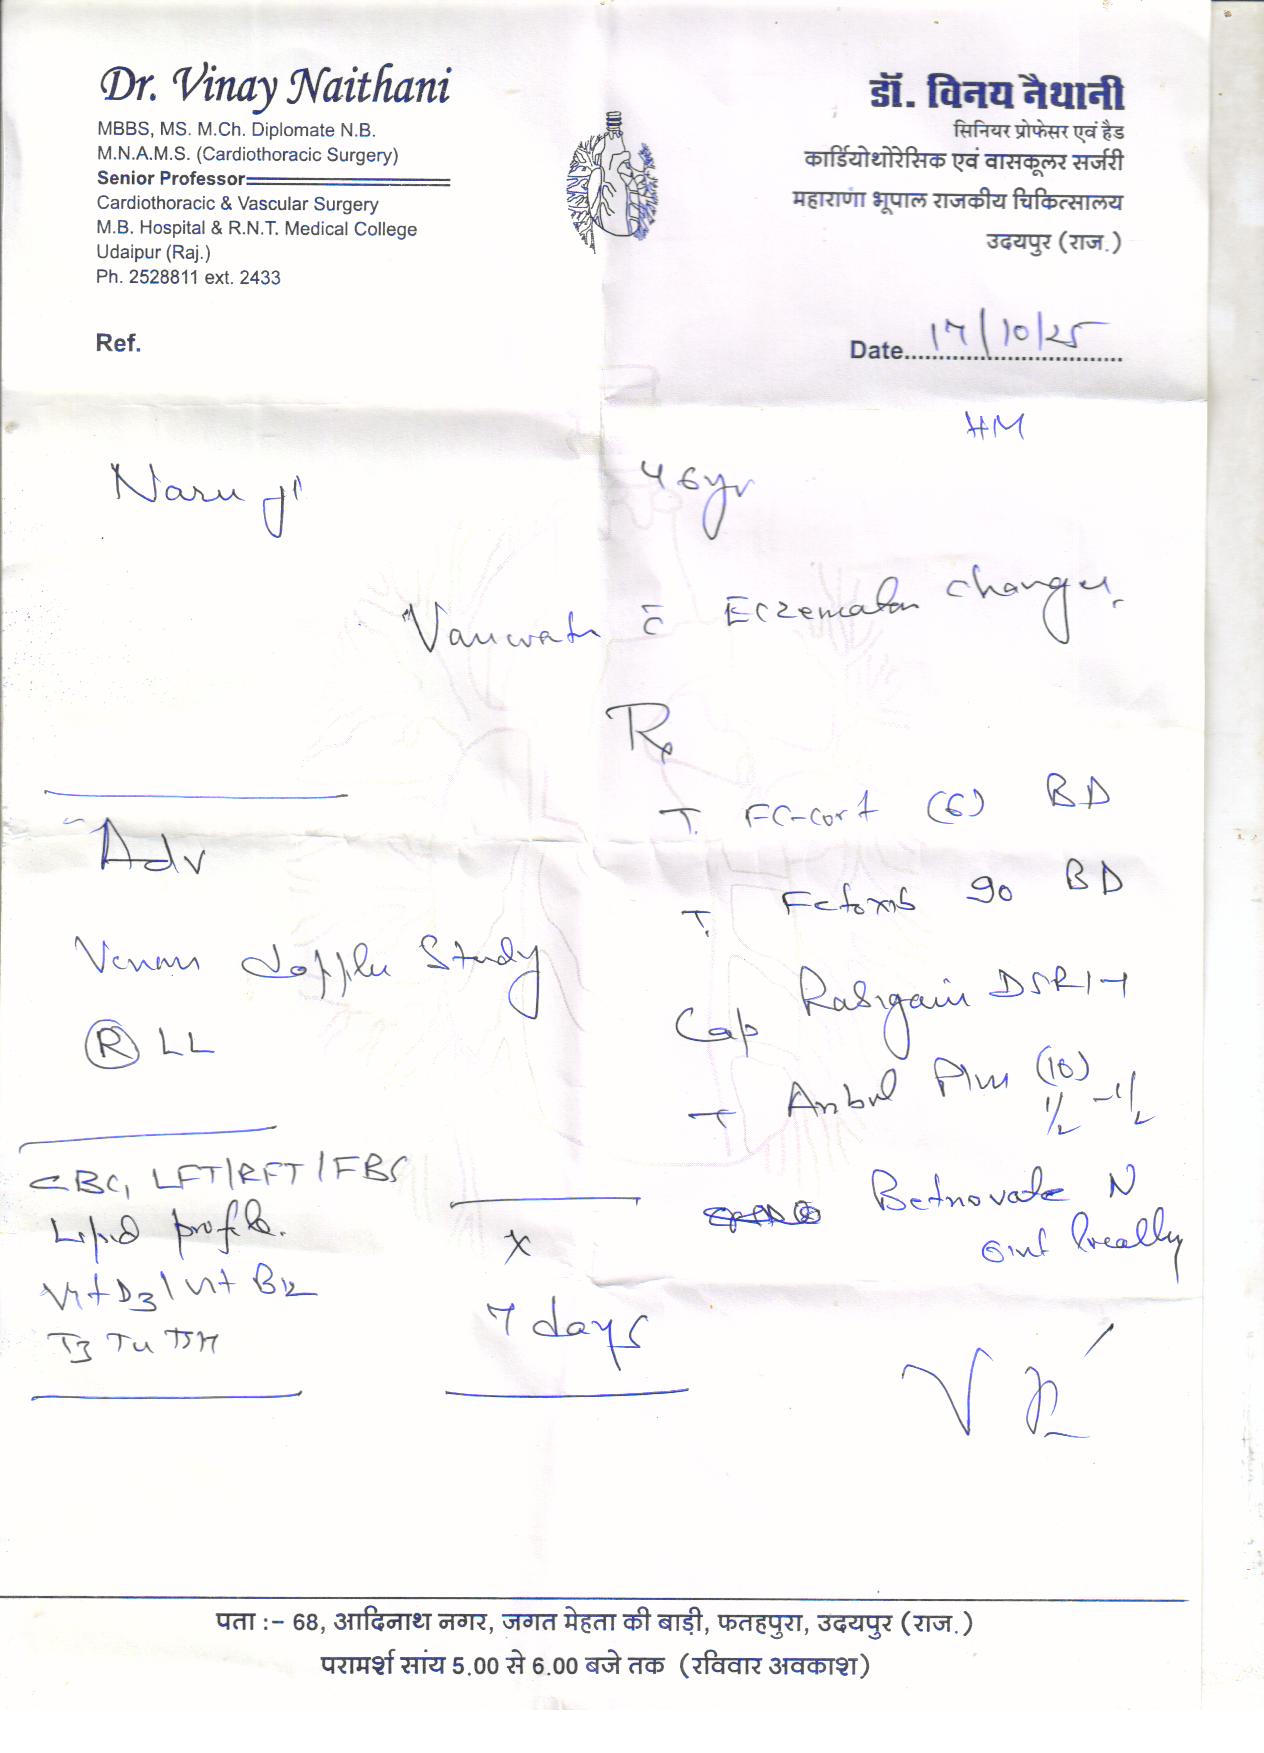 Dr. Vinay Naithani
MBBS, MS. M.Ch. Diplomate N.B.
M.N.A.M.S. (Cardiothoracic Surgery)
Senior Professor
Cardiothoracic & Vascular Surgery
M.B. Hospital & R.N.T. Medical College
Udaipur (Raj.)
Ph. 2528811 ext. 2433
डॉ. विनय नैथानी
सिनियर प्रोफेसर एवं हैड
कार्डियोथोरेसिक एवं वासकूलर सर्जरी
महाराणा भूपाल राजकीय चिकित्सालय
उदयपुर (राज.)
Ref.
Date 17/10/25
Naru ji 46yr
c̄ Eczematous changes
Rx
T. (6) BD
T. 90 BD
Cap DSR 1-1
T Plus (10)
1/2 - 1/2
Betnovate N
oint locally
Adv
Venous doppler Study
(R) LL
CBC, LFT/RFT/FBS
Lipid profile.
Vit D3/Vit B12
T3 T4 TSH
x
7 days
पता :- 68, आदिनाथ नगर, जगत मेहता की बाड़ी, फतहपुरा, उदयपुर (राज.)
परामर्श सांय 5.00 से 6.00 बजे तक (रविवार अवकाश)